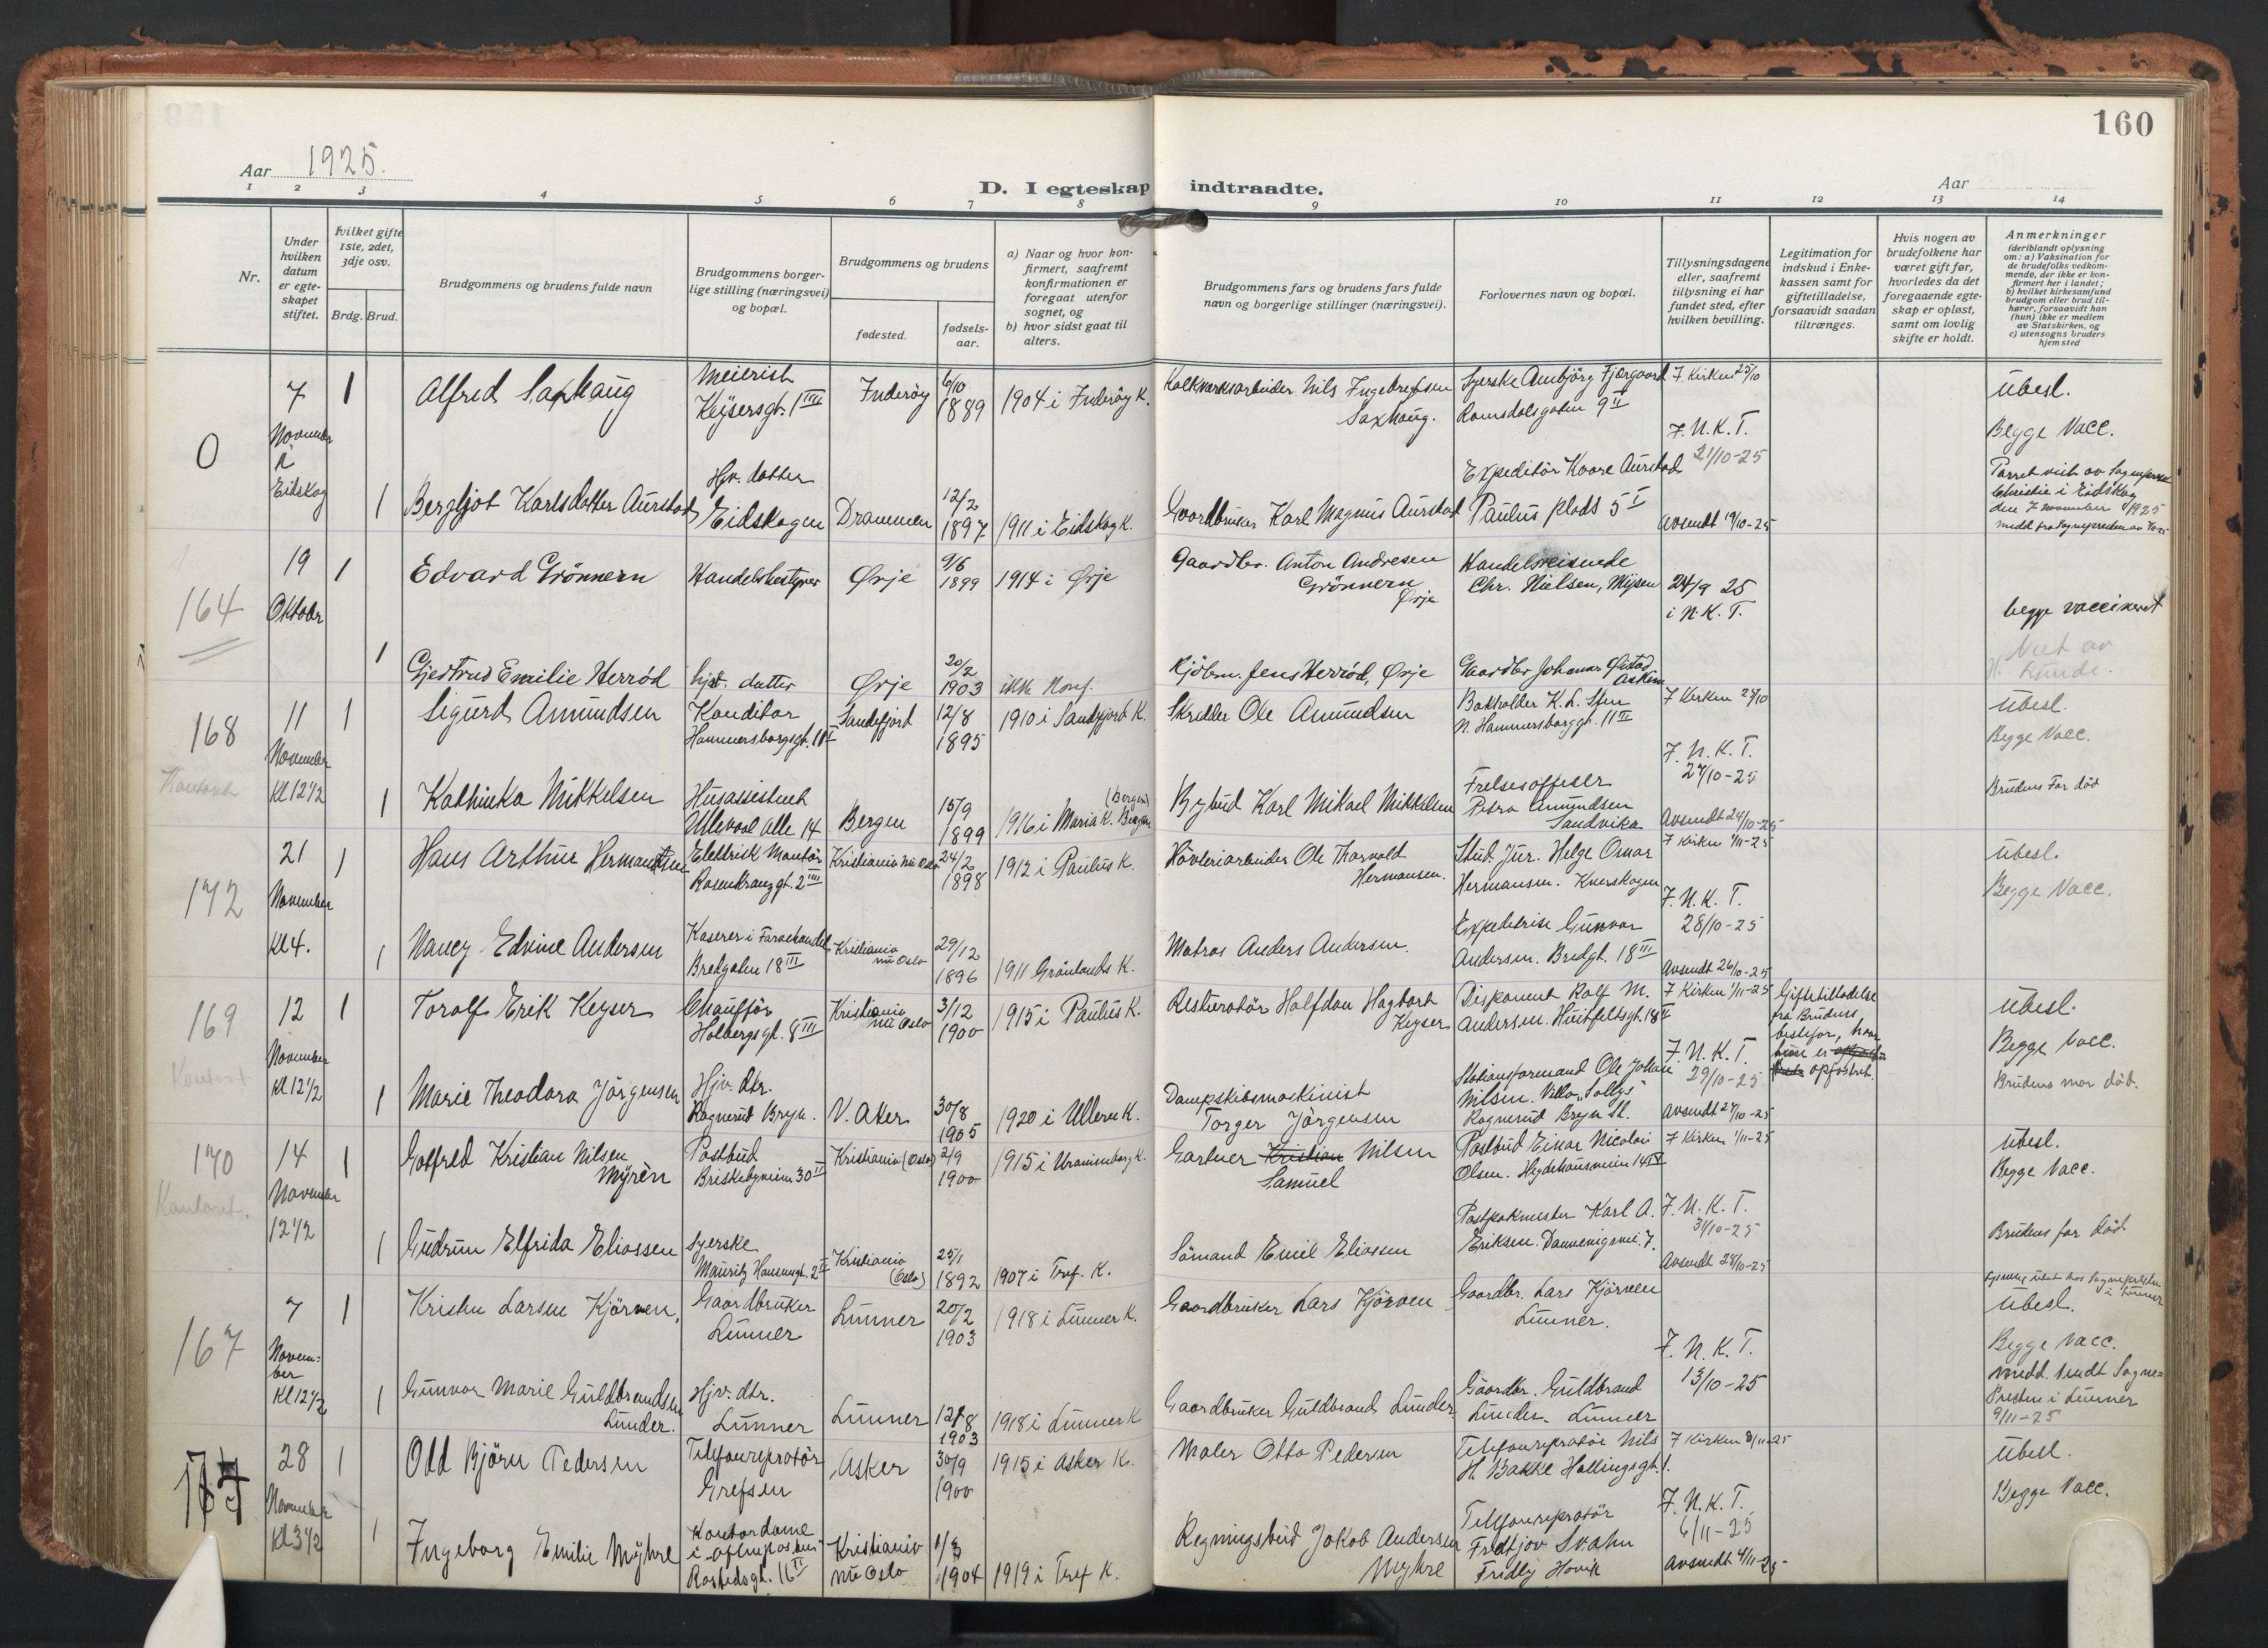 160
Aar 1925.
D. I egteskap indtraadte.
Aar
1 2 3 4 5 6 7 8 9 10 11 12 13 14
Nr.
Under hvilken datum er egteskapet stiftet.
Hvilket gifte 1ste, 2det, 3dje osv.
Brdg. Brud.
Brudgommens og brudens fulde navn
Brudgommens borgerlige stilling (næringsvei) og bopæl.
Brudgommens og brudens
fødested.
fødselsaar.
a) Naar og hvor konfirmert, saafremt konfirmationen er foregaat utenfor sognet, og
b) hvor sidst gaat til alters.
Brudgommens fars og brudens fars fulde navn og borgerlige stillinger (næringsvei).
Forlovernes navn og bopæl.
Tillysningsdagene eller, saafremt tillysning ei har fundet sted, efter hvilken bevilling.
Legitimation for indskud i Enkekassen samt for giftetilladelse, forsaavidt saadan tiltrænges.
Hvis nogen av brudefolkene har været gift før, hvorledes da det foregaaende egteskap er opløst, samt om lovlig skifte er holdt.
Anmerkninger
(deriblandt oplysning om: a) Vaksination for de brudefolks vedkommende, der ikke er konfirmert her i landet;
b) hvilket kirkesamfund brudgom eller brud tilhører, forsaavidt han (hun) ikke er medlem av Statskirken, og
c) utensogns bruders hjemsted
0 7 November i Eidskog
1 Alfred Saxhaug Meierist Keysersgt. 1 IIII Inderöy 6/10 1889 1904 i Inderöy K. Kalkverksarbeider Nils Ingebregtsen Saxhaug. Syerske Ambjörg Fjærgaard Ramsdalsgaten 9 II I Kirken 25/10 Ubesl.
I. N. K. T. 21/10-25 Begge Vacc.
1 Bergljot Karlsdatter Aurstad Hjv. datter Eidskogen Drammen 12/2 1897 1911 i Eidskog K. Gaardbruker Karl Magnus Aurstad Expeditör Kaare Aurstad Paulus plads 5 I Avsendt 19/10-25
Parret viet av Sogneprest Christie i Eidskog den 7 november 1925
164 19 Oktober
1 Edvard Grönnern Handelsbestyrer Ørje 9/6 1899 1914 i Ørje Gaardbr. Anton Andresen Grönnern Ørje Handelsreisende Chr. Nielsen, Mysen 24/9 25 i N. K. T. begge vaccineret
1 Gjertrud Emilie Herröd hjv. datter Ørje 20/2 1903 ikke Konf. Kjöbm. Jens Herröd, Ørje Gaardbr Johannes Østad Askim
168 Kontoret 11 November Kl 12 1/2
1 Sigurd Amundsen Konditor Hammersborggt. 11 I Sandefjord 12/8 1895 1910 i Sandefjord K. Skredder Ole Amundsen Bokholder K. L. Sten N. Hammersborggt. 11 III I Kirken 25/10 Ubesl.
I. N. K. T. 27/10-25 Begge Vacc.
1 Kathinka Mikkelsen Husassistent Ullevaal Alle 14 Bergen 15/9 1899 1916 i Maria K. Bergen (Bergen) Bybud Karl Mikael Mikkelsen Frelsesofficer Petra Amundsen Sandvika Avsendt 24/10-25 Brudens Far död
172 21 November Kl 4.
1 Hans Arthur Hermansen Elektrisk Montör Rosenkranzgt. 2 IIII Kristiania nu Oslo 24/2 1898 1912 i Paulus K. Hövleriarbeider Ole Tharvald Hermansen. Stud. Jur. Helge Omar Hermansen. Kverskogen I Kirken 1/11-25 Ubesl.
I. N. K. T. 28/10-25 Begge Vacc.
1 Nancy Edvine Andersen Kaserer i Farvehandel Bredgaten 18 III Kristiania nu Oslo 29/12 1896 1911 Grönlands K. Matros Anders Andersen. Expeditrise Gunvor Andersen. Bredgt. 18 III Avsendt 26/10-25
169 Kontoret 12 November Kl 12 1/2
1 Toralf Erik Keyser Chauffør Holbergsgt. 8 III Kristiania nu Oslo 3/12 1900 1915 i Paulus K. Restauratör Halfdan Hagbart Keyser Disponent Ralf M. Andersen. Huitfeltsgt. 18 II I Kirken 1/11-25 Giftetilladelse fra Brudens bestefar, hvor hun er opfostret. Ubesl.
I. N. K. T. 29/10-25 Begge Vacc.
1 Marie Theodora Jörgensen Hjv. dtr. Rognerud Bryn. V. Aker 30/8 1905 1920 i Ullern K. Dampskibsmaskinist Torger Jörgensen Stationsformand Ole Johan Nilsen. Villa "Sollys" Rognerud Bryn St. Avsendt 27/10-25 Brudens mor död.
170 Kontoret. 14 November 12 1/2
1 Gotfred Kristian Nilsen Myrèn Postbud Briskebyveien 30 II Kristiania (Oslo) 2/9 1900 1915 i Uranienborg K. Gartner Kristian Nilsen Samuel Postbud Einar Nicolai Olsen. Hegdehausveien 14 IV I Kirken 1/11-25 Ubesl.
Begge Vacc.
1 Gudrun Elfrida Eliassen Syerske Mauritz Hansensgt. 2 II Kristiania (Oslo) 25/1 1892 1907 i Tref. K. Sömand Emil Eliassen Postpakmester Karl A. Eriksen. Dannevigsvei. 7. I. N. K. T. 31/10-25 Avsendt 28/10-25 Brudens far död
167 7 November Kl 12 1/2
1 Kristen Larsen Kjörven, Gaardbruker Lunner Lunner 20/2 1903 1918 i Lunner K. Gaardbruker Lars Kjörven Gaardbr. Lars Kjörven Lunner. Ubesl.
I. N. K. T. 13/10-25 Begge Vacc.
1 Gunvor Marie Guldbrandsen Lunder. Hjv. dtr. Lunner Lunner 12/8 1903 1918 i Lunner K Gaardbruker Guldbrand Lunder Gaardbr. Guldbrand Lunder. Lunner medd. sendt Sognepresten i Lunner 9/11-25
28 November Kl 3 1/2
1 Odd Björn Pedersen Telefonreparatör Grefsen Asker 30/9 1900 1915 i Asker K. Maler Otto Pedersen Telefonreparatör Nils H. Bakke Hallingsgt. 1. I Kirken 8/11-25 Ubesl.
I. N. K. T. 6/11-25 Begge Vacc.
1 Ingeborg Emilie Myhre Kontordame i "Aftenposten" Rostedsgt. 16 II Kristiania nu Oslo 1/3 1904 1919 i Tref K. Regningsbud Jakob Andersen Myhre Telefonreparatör Fredtjov Svahn Fridly Hovik Avsendt 4/11-25